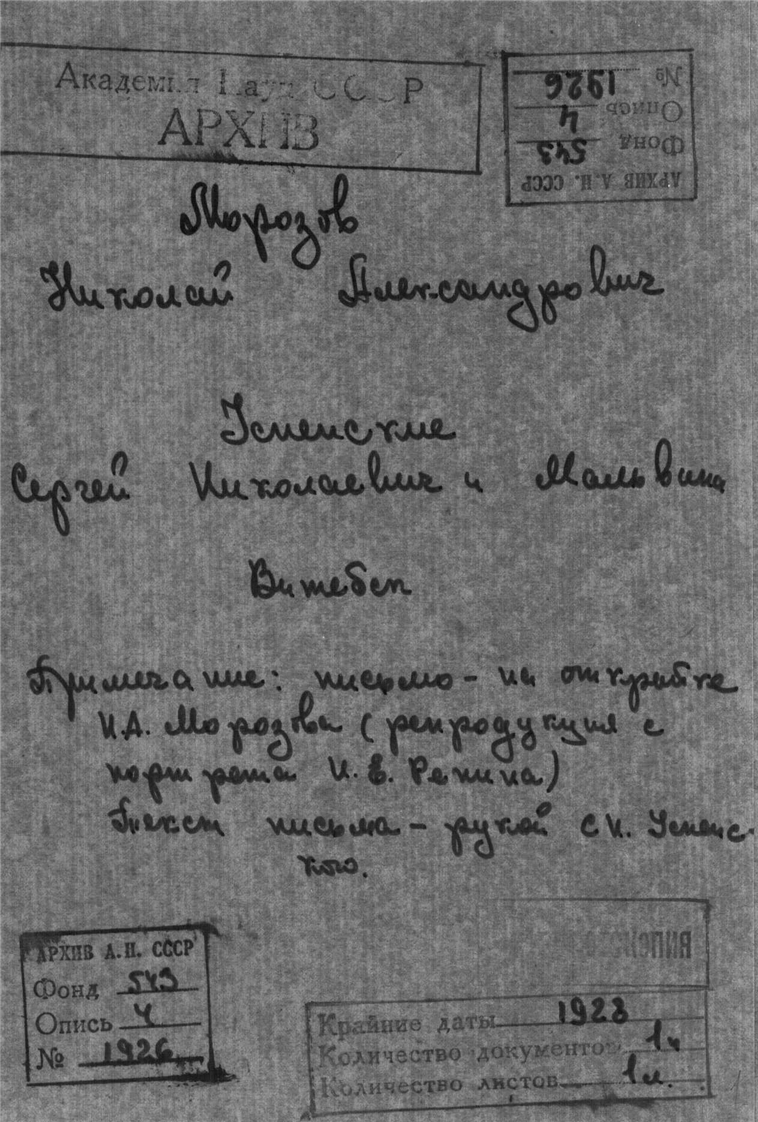 Академия Наук СССР
АРХИВ
АРХИВ А.Н. СССР
Фонд 543
Опись 4
№ 1926
Морозов
Николай Александрович
Успенские
Сергей Николаевич и Мальвина
Витебск
Примечание: письмо - на открытке
Н.А. Морозова (репродукция с
портрета И. Е. Репина)
Текст письма - рукой С.Н. Успенс-
кого.
АРХИВ А.Н. СССР
Фонд 543
Опись 4
№ 1926
Крайние даты 1928
Количество документов 1
Количество листов 1 л.